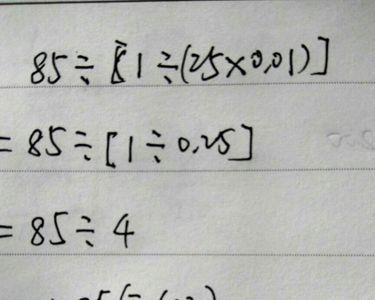 85÷[1÷(25×0.01)]
=85÷[1÷0.25]
=85÷4